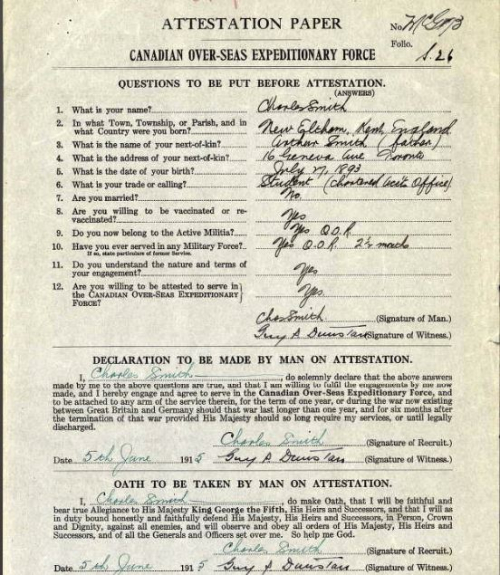 ATTESTATION PAPER
No. McG 73
Folio. S.26
CANADIAN OVER-SEAS EXPEDITIONARY FORCE
QUESTIONS TO BE PUT BEFORE ATTESTATION.
(ANSWERS)
1. What is your name? Charles Smith
2. In what Town, Township, or Parish, and in
what Country were you born? New Eltham, Kent, England
3. What is the name of your next-of-kin? Arthur Smith (father)
4. What is the address of your next-of-kin? 16 Geneva Ave Toronto
5. What is the date of your birth? July 17, 1893
6. What is your trade or calling? Student (Chartered Accts Office)
7. Are you married? No
8. Are you willing to be vaccinated or re-
vaccinated? Yes
9. Do you now belong to the Active Militia? Yes Q.O.R.
10. Have you ever served in any Military Force? Yes Q.O.R. 2½ months
If so, state particulars of former Service.
11. Do you understand the nature and terms of
your engagement? Yes
12. Are you willing to be attested to serve in
the CANADIAN OVER-SEAS EXPEDITIONARY
FORCE? Yes
Chas Smith (Signature of Man.)
Guy P. Dunstan (Signature of Witness.)
DECLARATION TO BE MADE BY MAN ON ATTESTATION.
I, Charles Smith, do solemnly declare that the above answers
made by me to the above questions are true, and that I am willing to fulfil the engagements by me now
made, and I hereby engage and agree to serve in the Canadian Over-Seas Expeditionary Force, and
to be attached to any arm of the service therein, for the term of one year, or during the war now existing
between Great Britain and Germany should that war last longer than one year, and for six months after
the termination of that war provided His Majesty should so long require my services, or until legally
discharged.
Charles Smith (Signature of Recruit.)
Date 5th June 1915 Guy P. Dunstan (Signature of Witness.)
OATH TO BE TAKEN BY MAN ON ATTESTATION.
I, Charles Smith, do make Oath, that I will be faithful and
bear true Allegiance to His Majesty King George the Fifth, His Heirs and Successors, and that I will as
in duty bound honestly and faithfully defend His Majesty, His Heirs and Successors, in Person, Crown
and Dignity, against all enemies, and will observe and obey all orders of His Majesty, His Heirs and
Successors, and of all the Generals and Officers set over me. So help me God.
Charles Smith (Signature of Recruit.)
Date 5th June 1915 Guy P. Dunstan (Signature of Witness.)